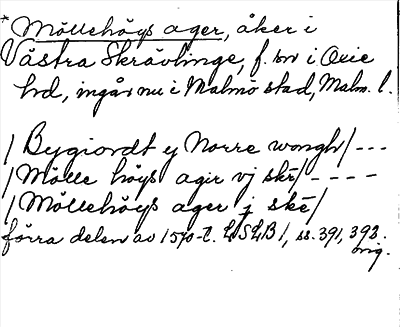 * Möllehöys ager, åker i
Västra Skrävlinge, f. sn i Oxie
hd, ingår nu i Malmö stad, Malm. l.
/ Bygiordt ej Norre wongh / ---
/ Mölle höys agir vj skē / ----
/ Möllehöys ager j skē /
förra delen av 1570-t. LSLB 1, ss. 391, 393.
orig.